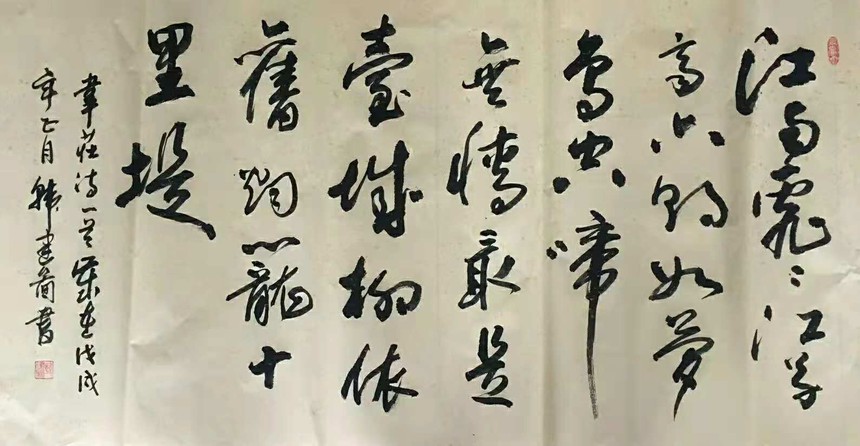 江雨霏〻江草
齊六朝如夢
鳥空啼
無情最是
臺城柳依
舊烟籠十
里堤
韋莊詩一首歲在戊戌
年正月韩建書